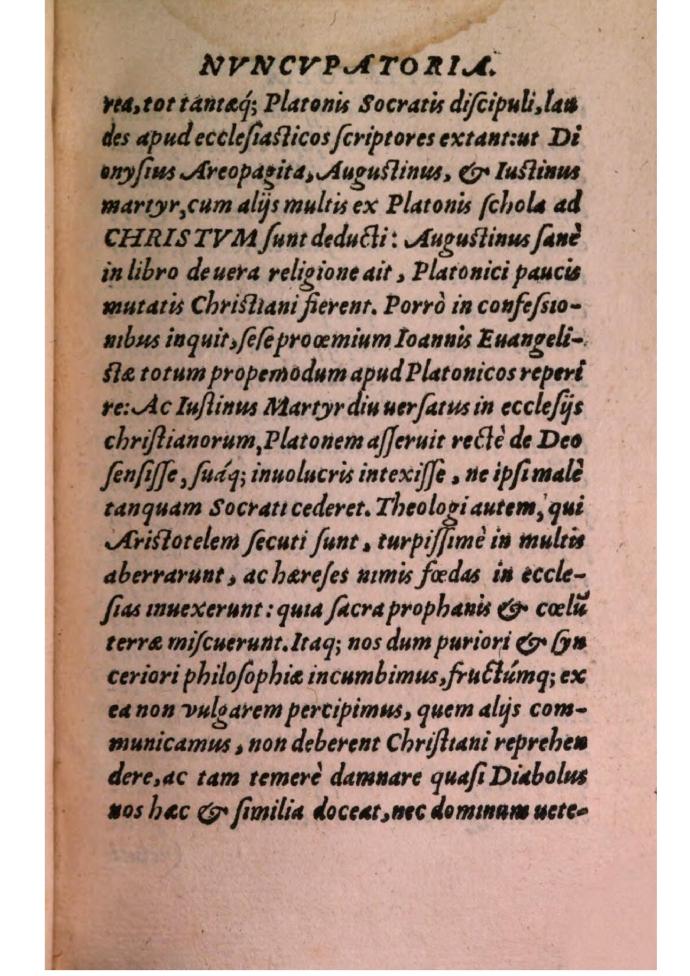 NVNCVPATORIA.
rea, tot tantæq́; Platonis Socratis diſcipuli, lau
des apud eccleſiaſticos ſcriptores extant: ut Di
onyſius Areopagita, Auguſtinus, & Iuſtinus
martyr, cum alijs multis ex Platonis ſchola ad
CHRISTVM ſunt deducti: Auguſtinus ſanè
in libro de uera religione ait, Platonici paucis
mutatis Chriſtiani fierent. Porrò in confeſsio-
nibus inquit, ſeſe proœmium Ioannis Euangeli-
ſtæ totum propemodum apud Platonicos reperi
re: Ac Iuſtinus Martyr diu uerſatus in eccleſijs
chriſtianorum, Platonem aſſeruit rectè de Deo
ſenſiſſe, ſuáq; inuolucris intexiſſe, ne ipſi malè
tanquam Socrati cederet. Theologi autem, qui
Ariſtotelem ſecuti ſunt, turpiſſimè in multis
aberrarunt, ac hæreſes nimis fœdas in eccle-
ſias inuexerunt: quia ſacra prophanis & cœlū
terræ miſcuerunt. Itaq; nos dum puriori & ſyn
ceriori philoſophiæ incumbimus, fructúmq; ex
ea non vulgarem percipimus, quem alijs com-
municamus, non deberent Chriſtiani reprehen
dere, ac tam temerè damnare quaſi Diabolus
nos hæc & ſimilia doceat, nec dominum uete-